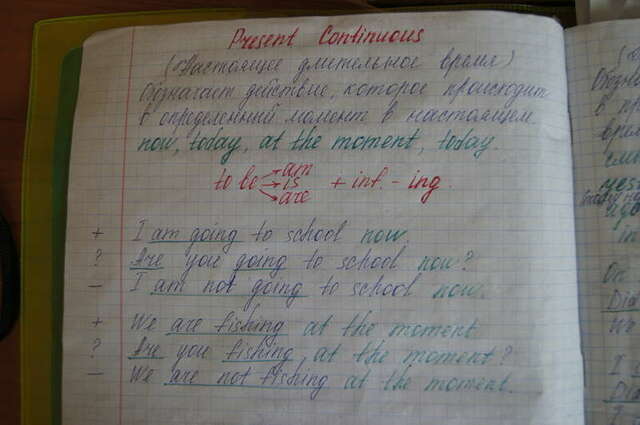 Present Continuous
(Настоящее длительное время)
Обозначает действие, которое происходит
в определённый момент в настоящем
now, today, at the moment, today.
am
to be is + inf. - ing.
are
+ I am going to school now.
? Are you going to school now?
- I am not going to school now.
+ We are fishing at the moment
? Are you fishing at the moment?
- We are not fishing at the moment.